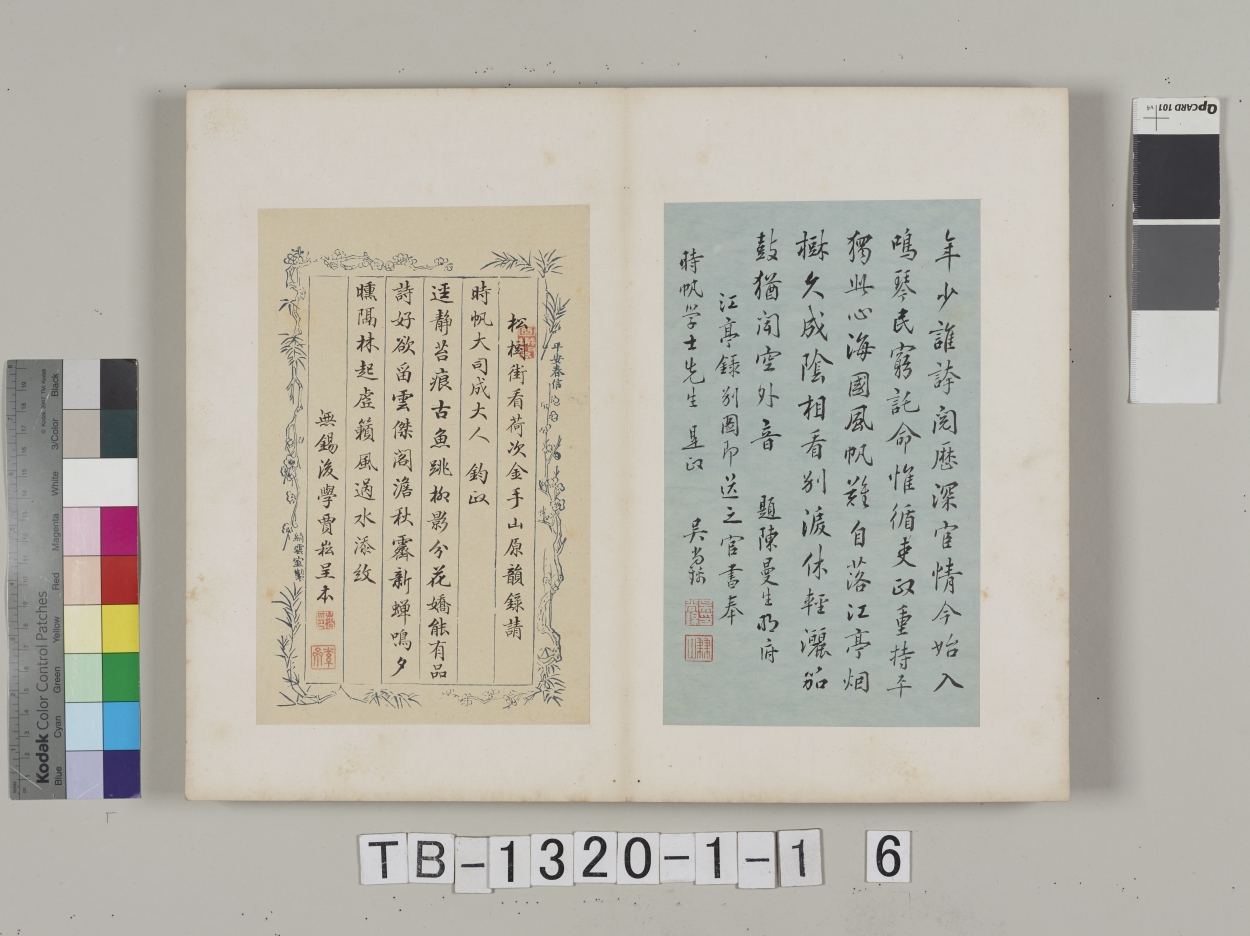 年少誰誇閱歷深宦情今始入
鳴琴民窮託命惟循吏政重持平
獨此心海國風帆難自落江亭烟
樹久成陰相看別淚休輕灑笳
鼓猶聞空外音 題陳曼生明府
江亭錄別圖即送之官書奉
時帆学士先生 是政 吳嵩
松樹街看荷次金手山原韻錄請
時帆大司成大人 鈞政
逕靜苔痕古魚跳柳影分花嬌能有品
詩好欲留雲傑閣澹秋霽新蟬鳴夕
曛隔林起虛籟風過水添紋
無錫後學賈崧呈本
平安春信
TB-1320-1-1 6
QPCARD 101
Kodak Color Control Patches
Blue Cyan Green Yellow Red Magenta White 3/Color Black